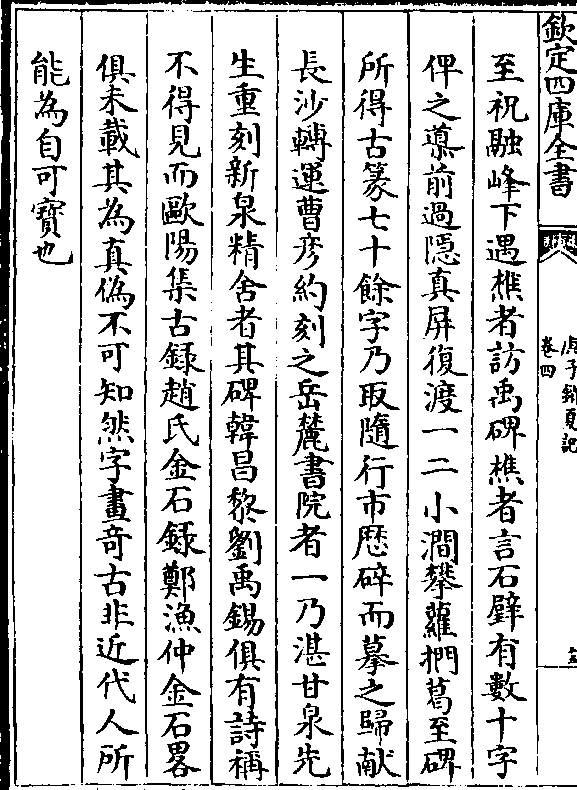 欽定四庫全書
庚子銷夏記
卷四
至祝融峰下遇樵者訪禹碑樵者言石壁有數十字
俾之導前過隱真屏復渡一二小澗攀蘿捫葛至碑
所得古篆七十餘字乃取隨行市歷碎而摹之歸献
長沙轉運曹彦約刻之岳麓書院者一乃湛甘泉先
生重刻新泉精舍者其碑韓昌黎劉禹錫俱有詩稱
不得見而歐陽集古録趙氏金石録鄭漁仲金石畧
俱未載其為真偽不可知然字畫奇古非近代人所
能為自可寶也